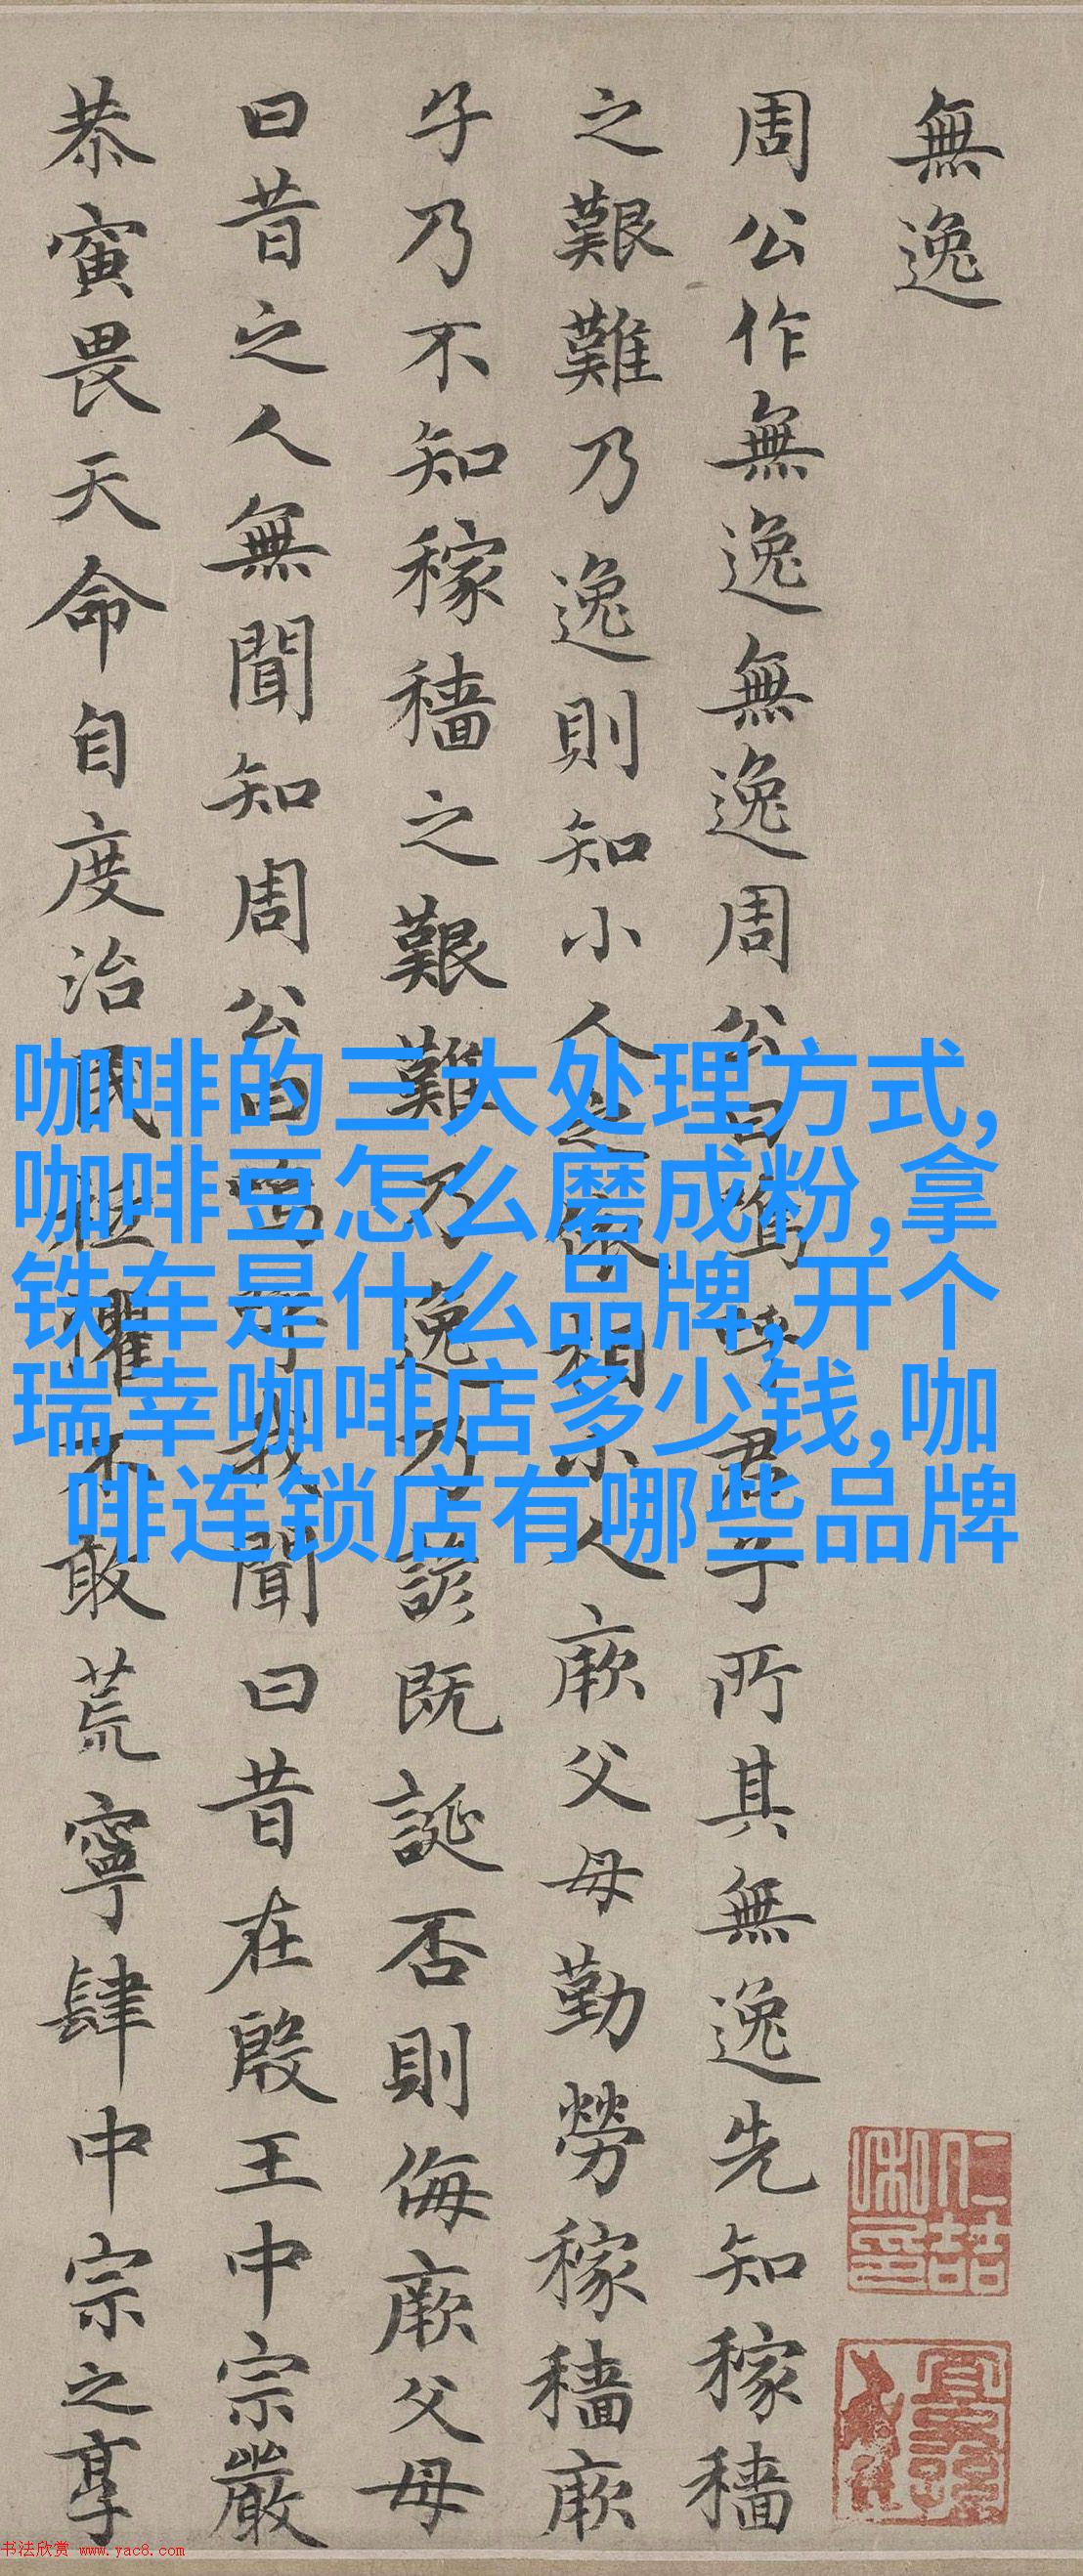 無逸
周公作無逸無逸周公曰嗚呼君子所其無逸先知稼穡
之艱難乃逸則知小人之依相小人厥父母勤勞稼穡厥
子乃不知稼穡之艱難乃逸乃諺既誕否則侮厥父母
曰昔之人無聞知周公曰嗚呼我聞曰昔在殷王中宗嚴
恭寅畏天命自度治民祗懼不敢荒寧肆中宗之享
咖啡的三大处理方式,
咖啡豆怎么磨成粉,拿
铁车是什么品牌,开个
瑞幸咖啡店多少钱,咖
啡连锁店有哪些品牌
书法欣赏 www.yac8.com